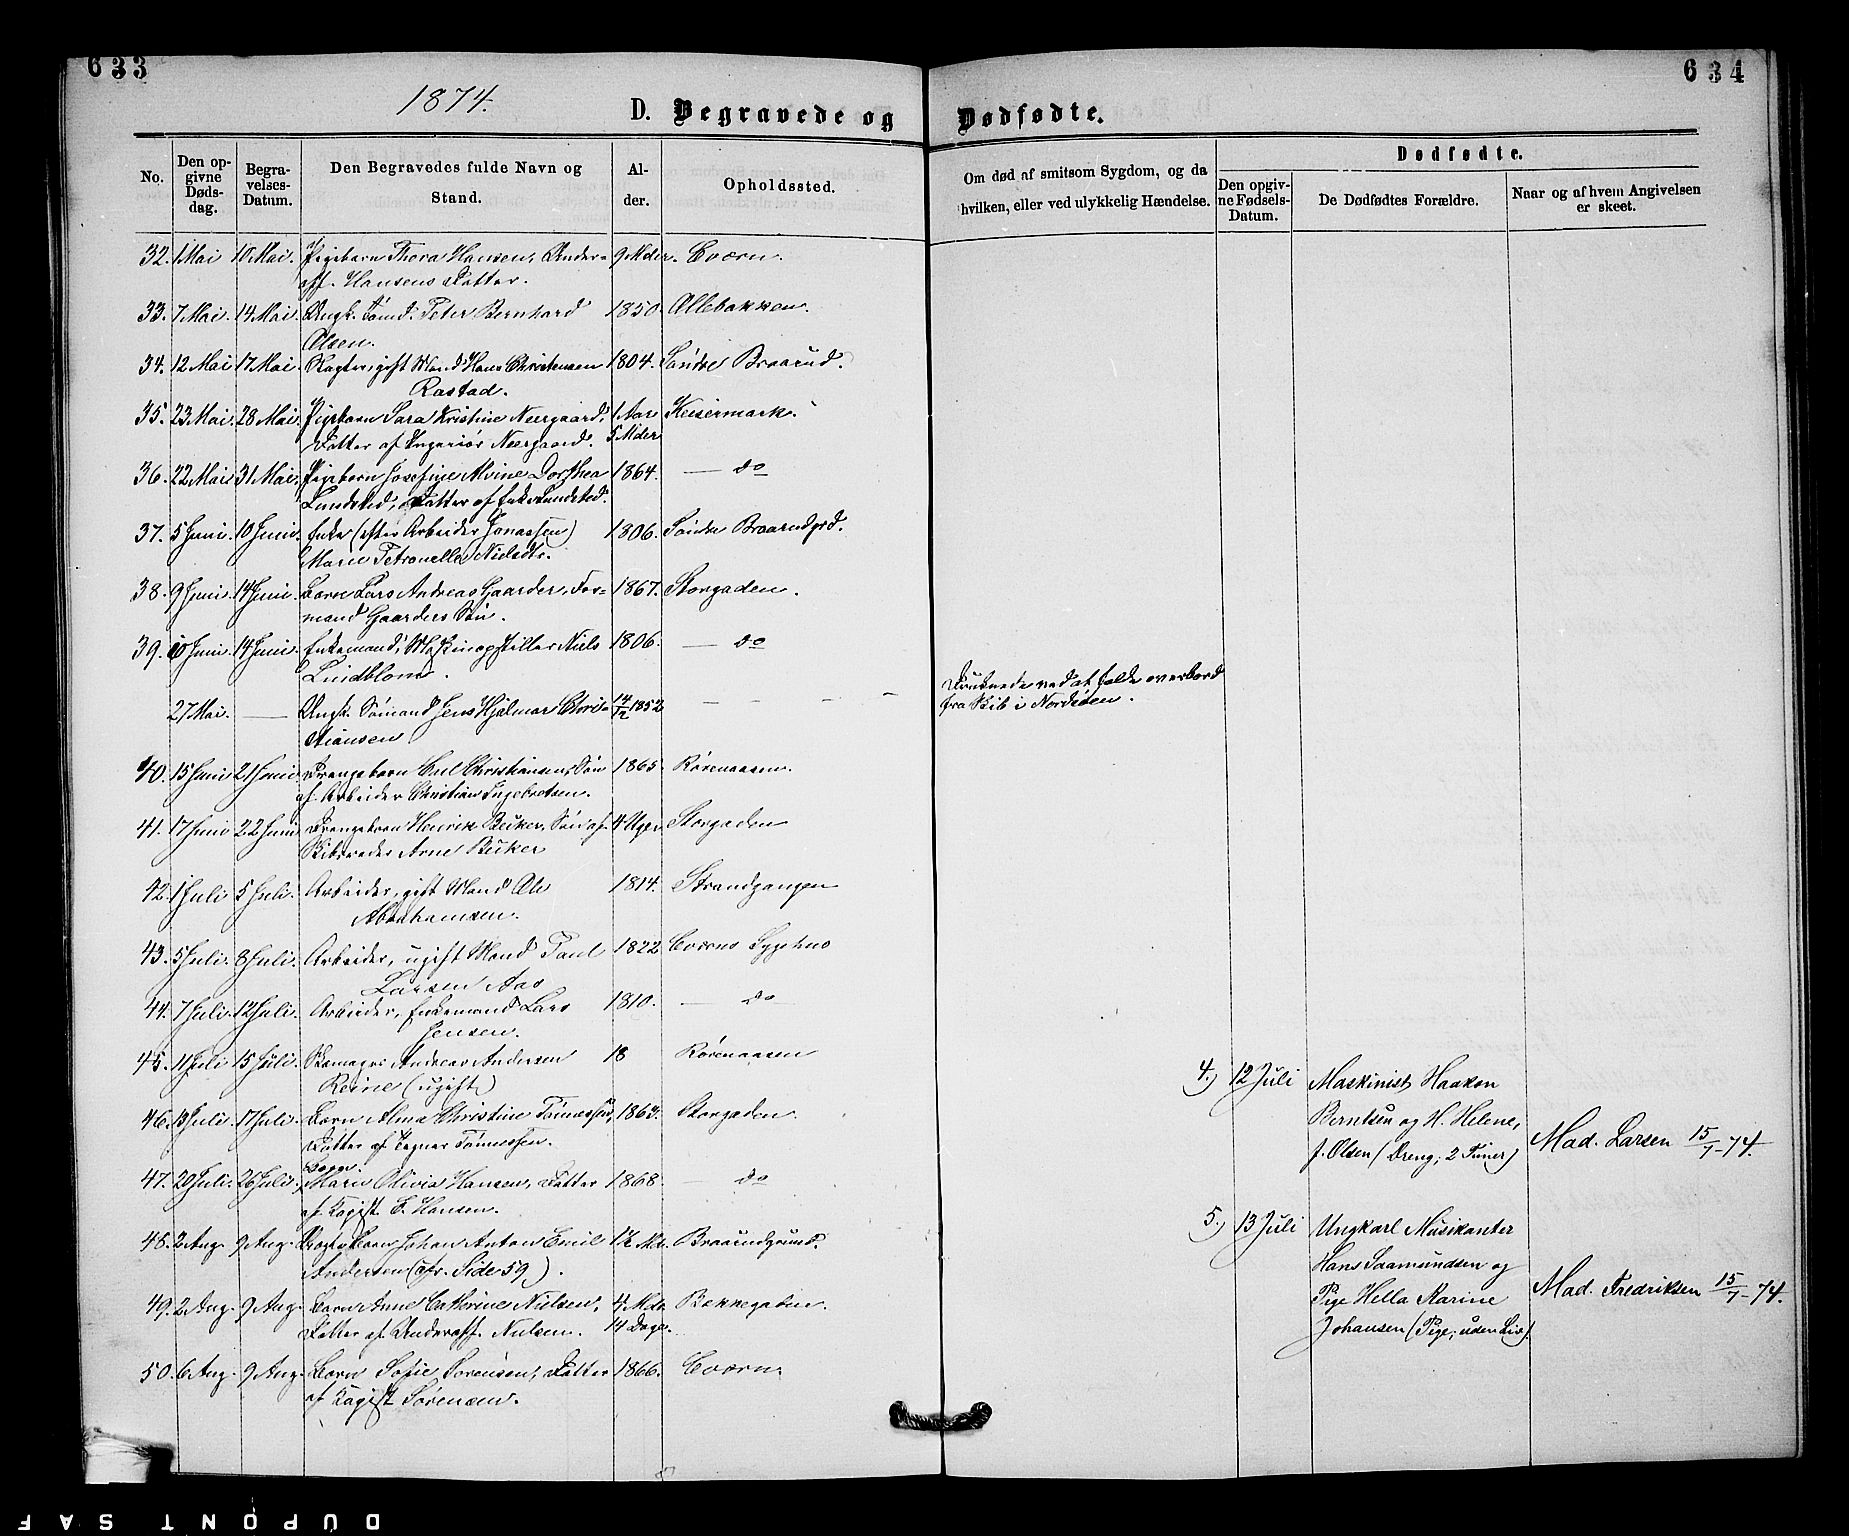 633
634
1874.
D. Begravede og Dødfødte.
No.
Den opgivne Dødsdag.
Begravelses-Datum.
Den Begravedes fulde Navn og Stand.
Alder.
Opholdssted.
Om død af smitsom Sygdom, og da hvilken, eller ved ulykkelig Hændelse.
Dødfødte.
Den opgivne Fødsels-Datum.
De Dødfødtes Forældre.
Naar og af hvem Angivelsen er skeet.
32. 1 Mai 10 Mai. Pigebarn Thora Hansen, Under- 9 Mdr. Eværn.
off. Hansens Datter.
33. 7 Mai. 14 Mai. Ungk. Sømd. Peter Bernhard 1850. Ollebakken.
Olsen.
34. 12 Mai 17 Mai. gift Mand Hans Christensen 1804. Søndre Braarud.
Rastad.
35. 23 Mai. 28 Mai. Pigebarn Sara Kristine Neergaard, 1 Aar Keisermark.
Datter af Ingeniør Neergaard. 5 Mdr
36. 22 Mai 31 Mai. Pigebarn Josefine Alvine Dorthea 1864. — do
Lundsted, Datter af Enke Lundsted.
37. 5 Juni 10 Juni. Enke (efter Arbeider Jonassen) 1806. Søndre Braarudgrd.
Marie Petronelle Nielsdtr.
38. 9 Juni 14 Juni. Barn Lars Andreas Gaarder, For- 1867. Storgaden.
mand Gaarders Søn.
39. 10 Juni. 14 Juni. Enkemand, Maskinopstiller Niels 1806. — do
Lindblom.
27 Mai. — Ungk. Sømand Jens Hjalmar Chris- 14/12 1852 — — — Druknede ved at falde overbord
tiansen fra Skib i Nordsøen.
40. 15 Juni 21 Juni Drengebarn Christiansen, Søn 1865. Rørenaasen.
af Arbeider Christian Ingebretsen.
41. 17 Juni 22 Juni Drengebarn Henrik Beiker, Søn af 4 Uger Storgaden
Skibsreder Arne Beiker
42. 1 Juli 5 Juli. Arbeider, gift Mand Ole 1814. Strandgangen
Abrahamsen.
43. 5 Juli. 8 Juli. Arbeider, ugift Mand Paul 1822 Eværns Sygehus
Larsen Aas
44. 7 Juli. 12 Juli. Arbeider, Enkemand Lars 1810. — do
Jensen.
45. 11 Juli 15 Juli. Skomager Andreas Andersen 18 Rørenaasen
Reine (ugift)
46. 13 Juli. 17 Juli. Barn Alma Christine Tønnessen, 1863. Storgaden.
Datter af Tønnessen.
47. 20 Juli. 26 Juli. Barn Marie Olivia Hansen, Datter 1868. — do
af E. Hansen.
48. 2 Aug. 9 Aug. Johan Anton Emil 1½ Md. Braarudgrund.
Andersen (cfr. Side 59).
49. 2 Aug. 9 Aug. Barn Anne Cathrine Nielsen, 4 Mdr. Bakkegaden.
Datter af Underoff. Nielsen. 14 Dage.
50. 6 Aug. 9 Aug. Barn Sofie Sørensen, Datter 1866. Eværn.
af Sørensen.
4.) 12 Juli Maskinist Haakon
Berntsen og H. Helene,
J. Olsen (Dreng; 2 Timer) Mad. Larsen 15/7-74.
5.) 13 Juli Ungkarl Musikanter
Hans Saamundsen og
Pige Hella Karine Mad. Fredriksen 15/7-74.
Johansen (Pige; uden Liv)
DUPONT SAF